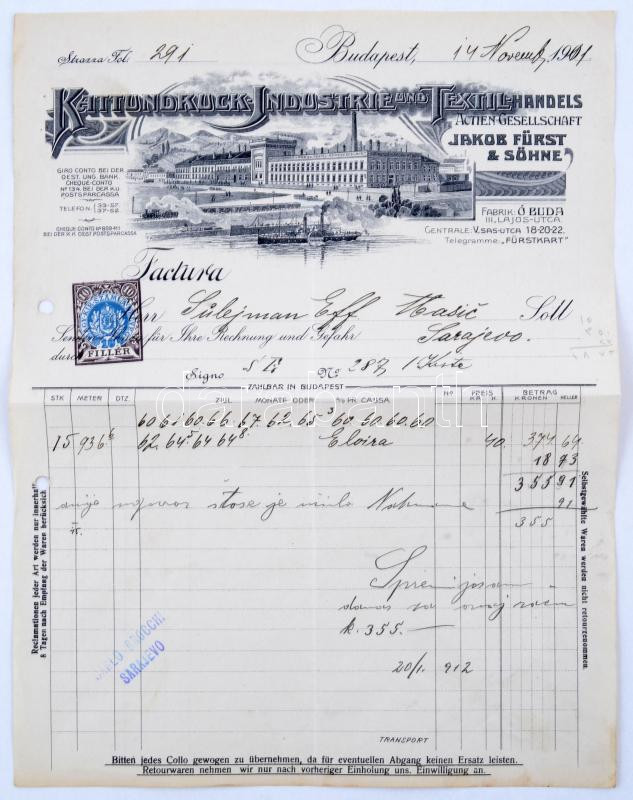 Strazza Fol. 291 Budapest, 14 Novemb 1911
KATTUNDRUCK-INDUSTRIE UND TEXTIL-HANDELS
ACTIEN-GESELLSCHAFT
JAKOB FÜRST
& SÖHNE
GIRO CONTO BEI DER
OEST. UNG. BANK.
CHEQUE-CONTO
Nº 134. BEI DER K.U.
POSTSPARCASSA
TELEFON: 33-57
37-52
BEI DER K.K. OEST. POSTSPARCASSA
FABRIK: Ó BUDA
III, LAJOS-UTCA.
CENTRALE: V. SAS-UTCA 18-20-22.
Telegramme: „FÜRSTKART"
Factura
10 10
FILLÉR
Herrn Sulejman Eff Hadič Soll
für Ihre Rechnung und Gefahr Sarajevo.
durch
Signo S Nº 287 1 Kiste
ZAHLBAR IN BUDAPEST
STK METER DTZ. ZIEL MONATE ODER % PR. CAUSA Nº PREIS KR. H. BETRAG KRONEN HELLER
60. 61. 60. 66. 67. 62. 65 3 60. 60. 60. 60.
15 936 6 62. 64 5 64 64 8 Eloira 40. 374 64
18 73
355 91
91
355
Spremljosam
danas sa ovaj račun
k. 355.—
20/1. 912
CARLO
SARAJEVO
TRANSPORT
Reclamationen jeder Art werden nur innerhalb
8 Tagen nach Empfang der Waren berücksich
Selbstgewählte Waren werden nicht retourgenommen.
Bitten jedes Collo gewogen zu übernehmen, da für eventuellen Abgang keinen Ersatz leisten.
Retourwaren nehmen wir nur nach vorheriger Einholung uns. Einwilligung an.